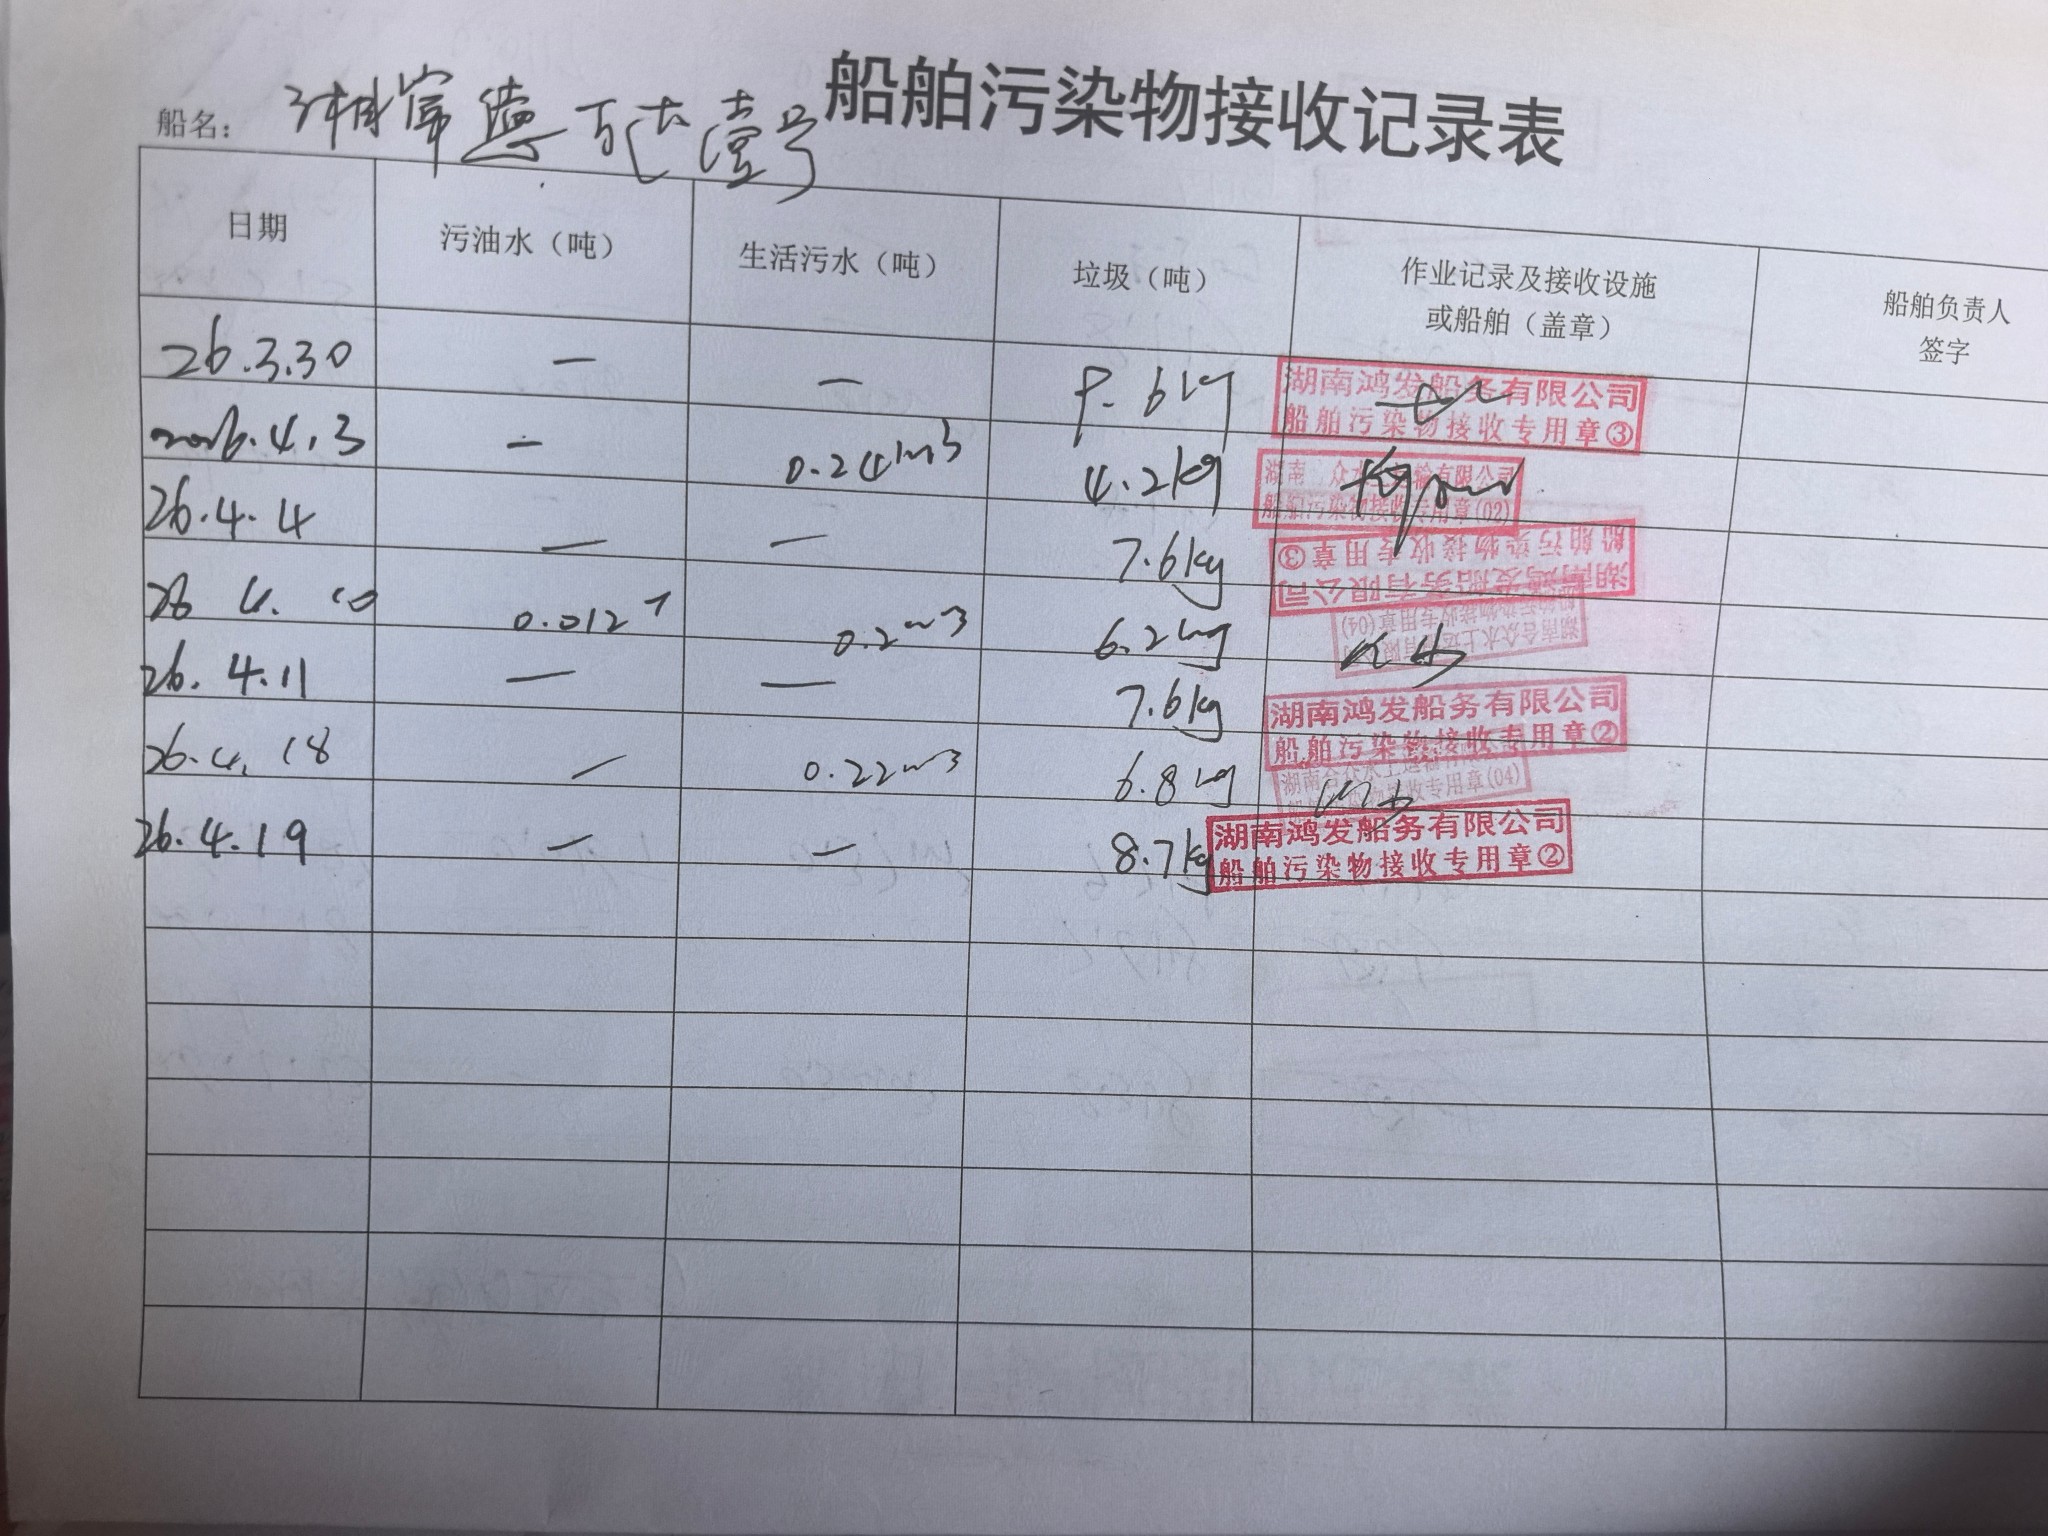 船舶污染物接收记录表
船名：湘常德 壹号
日期 污油水（吨） 生活污水（吨） 垃圾（吨） 作业记录及接收设施或船舶（盖章） 船舶负责人签字
26.3.30 — — 6kg 湖南鸿发船务有限公司 船舶污染物接收专用章③
2026.4.3 — 0.24m3 4.2kg 湖南 众水 运输有限公司 船舶污染物接收专用章(02)
26.4.4 — — 7.6kg 湖南鸿发船务有限公司 船舶污染物接收专用章③
26 4. 10 0.012T 0.2m3 6.2kg 湖南合众水上运输有限 船舶污染物接收专用章(04)
26.4.11 — — 7.6kg 湖南鸿发船务有限公司 船舶污染物接收专用章②
26.4.18 — 0.22m3 6.8kg 湖南合众水上运输 船舶污染物接收专用章(04)
26.4.19 — — 8.7kg 湖南鸿发船务有限公司 船舶污染物接收专用章②